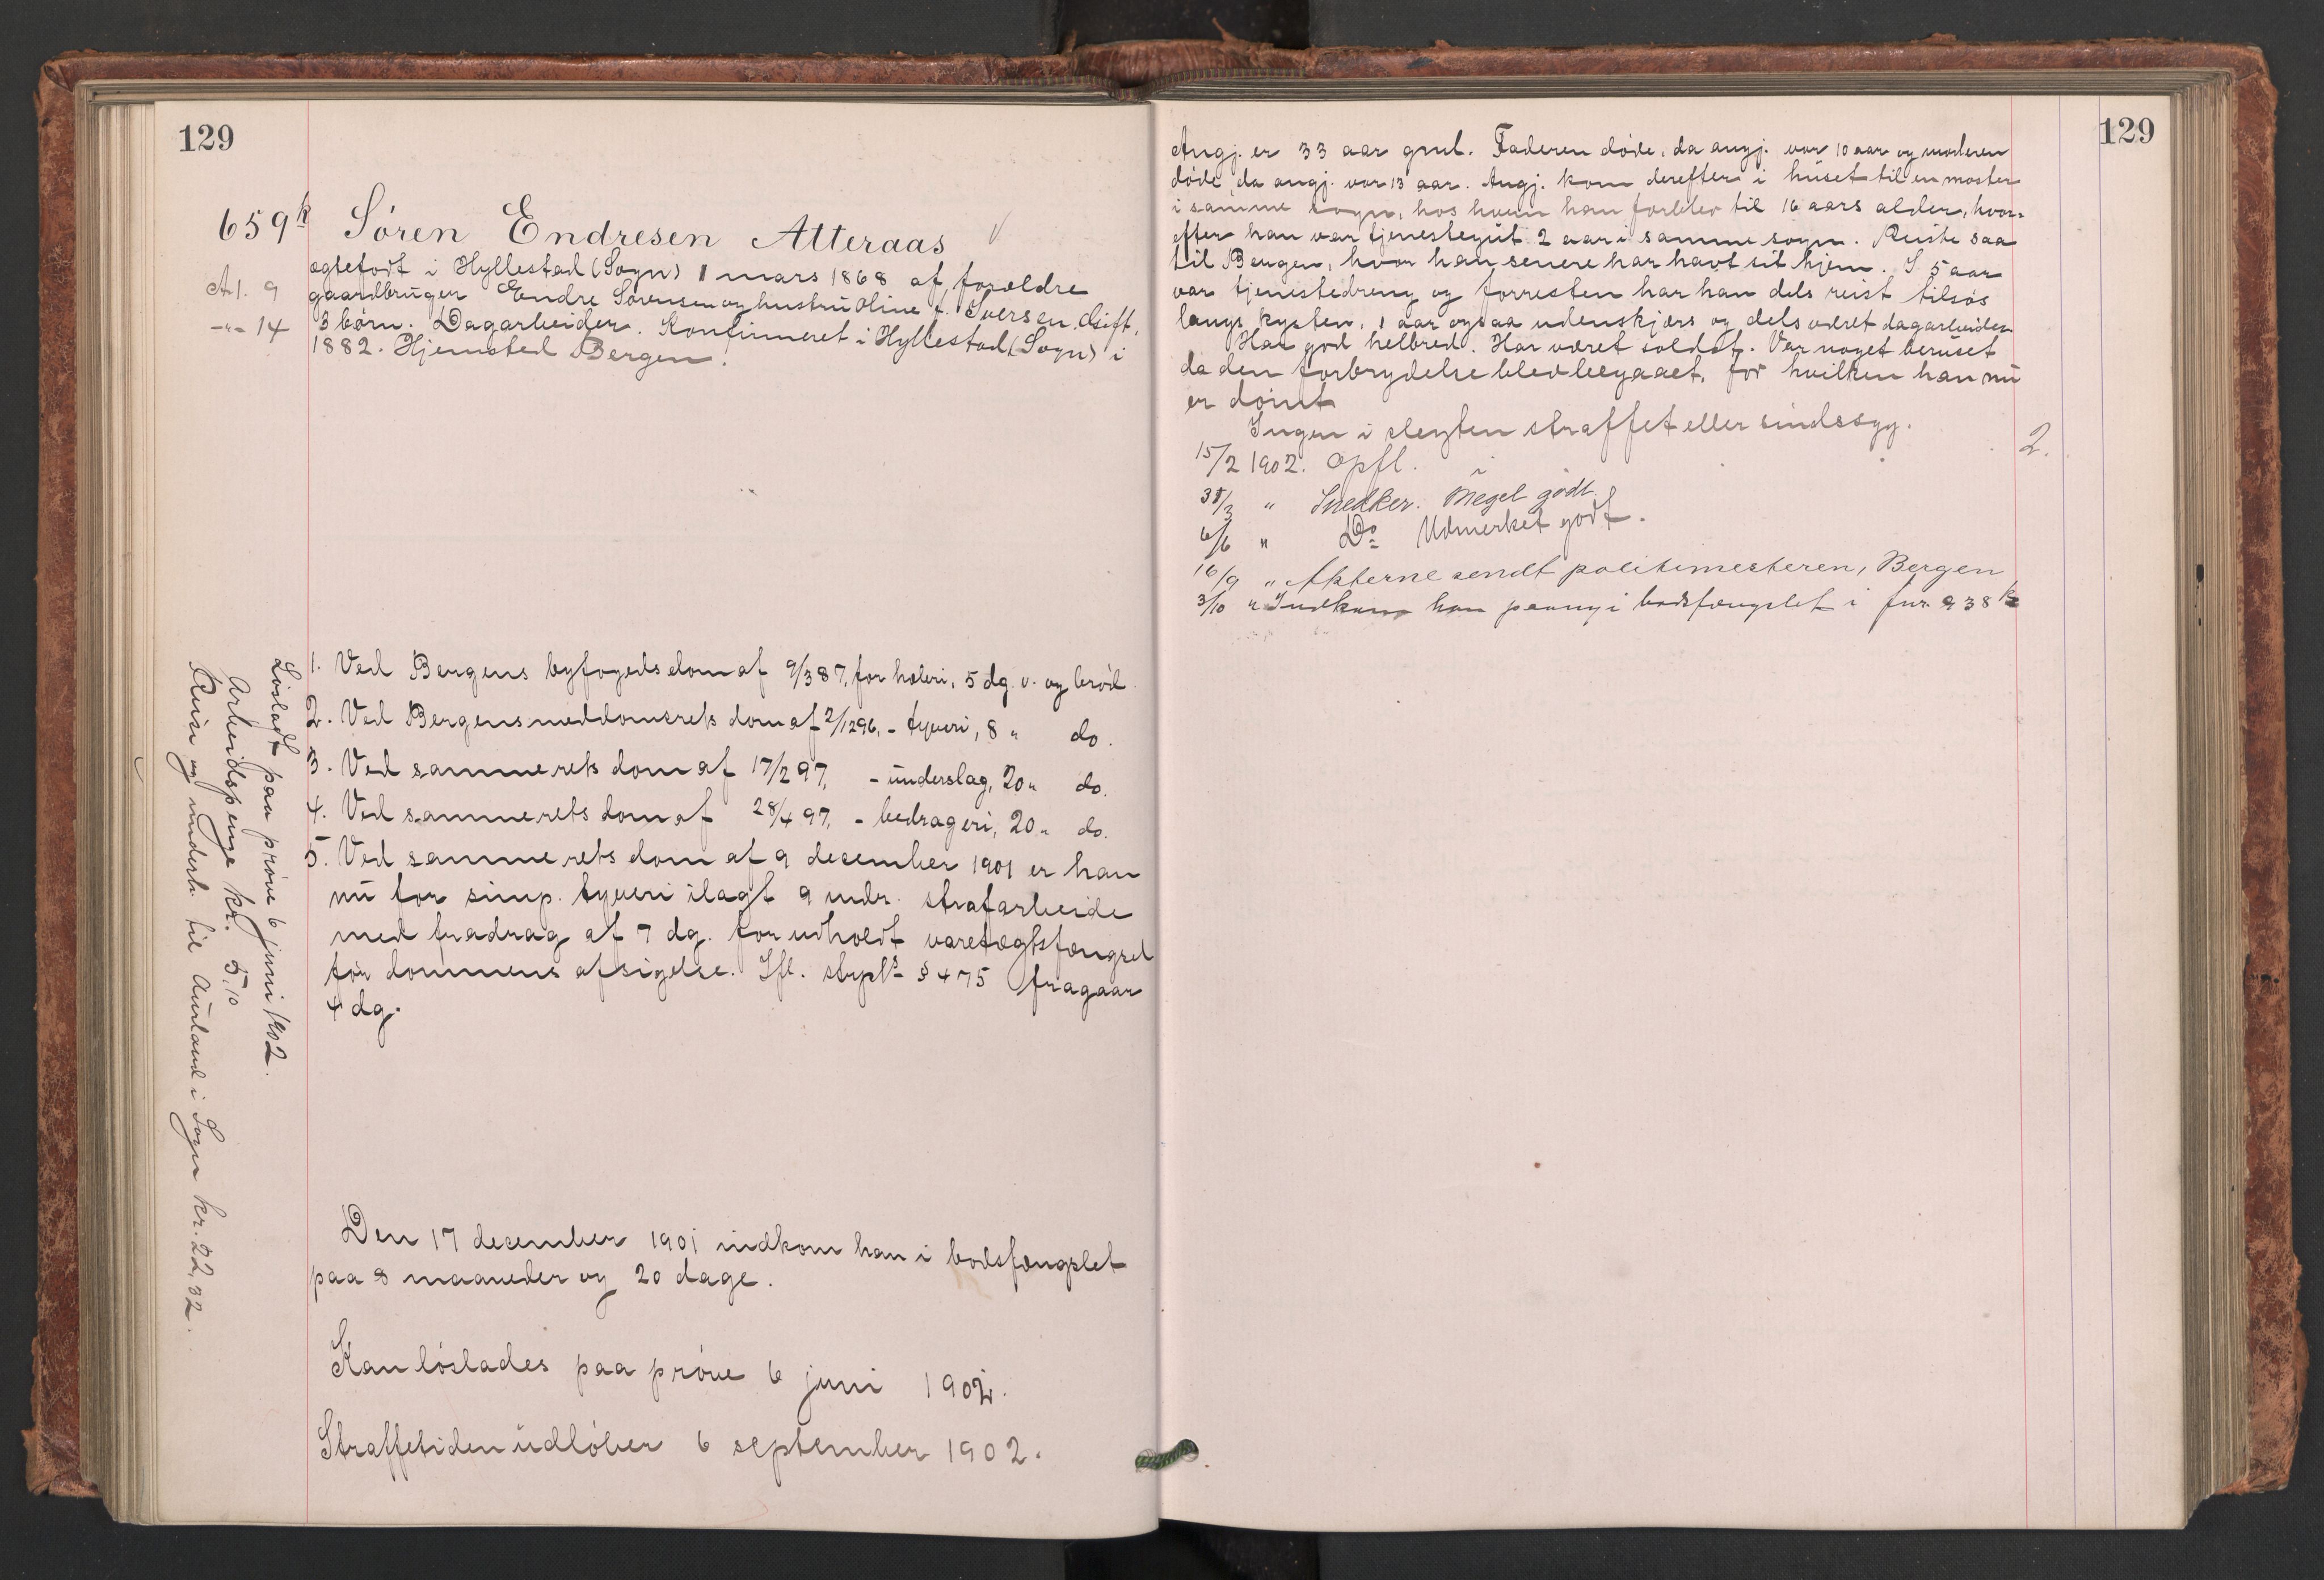 129
659k Sören Endresen Atteraas
At. 9
-"- 14
ægtefødt i Hyllestad (Sogn) 1 mars 1868 af forældre
gaardbruger Endre Sørensen og hustru Oline f. Iversen. Gift,
3 børn. Dagarbeider. Konfirmeret i Hyllestad (Sogn) i
1882. Hjemsted Bergen.
1. Ved Bergens byfogeds dom af 9/3 87, for hæleri, 5 dg. v. og brød.
2. Ved Bergens meddomsrets dom af 2/12 96, - tyveri, 8 " do.
3. Ved samme rets dom af 17/2 97, - underslag, 20 " do.
4. Ved samme rets dom af 28/4 97, - bedrageri, 20 " do.
5. Ved samme rets dom af 9 december 1901 er han
nu for simp. tyveri ilagt 9 mdr. strafarbeide
med fradrag af 7 dg. for udholdt varetægtsfængsel
før dommens afsigelse. Ifl. strpl. § 475 fragaar
4 dg.
Løsladt paa prøve 6 juni 1902.
Arbeidspenge kr. 5,10
Reise og underh. til Aurland i Sogn kr. 22,32.
Den 17 december 1901 indkom han i bodsfængslet
paa 8 maaneder og 20 dage.
Kan løslades paa prøve 6 juni 1902.
Straffetiden udløber 6 september 1902.
129
Angj. er 33 aar gml. Faderen døde, da angj. var 10 aar og moderen
døde, da angj. var 13 aar. Angj. kom derefter i huset til en moster
i samme sogn, hos hvem han forblev til 16 aars alder, hvor-
efter han var tjenestegut 2 aar i samme sogn. Reiste saa
til Bergen, hvor han senere har havt sit hjem. I 5 aar
var tjenestedreng og forresten har han dels reist tilsøs
langs kysten, 1 aar ogsaa udenskjærs og dels været dagarbeider.
Har god helbred. Har været soldat. Var noget beruset
da den forbrydelse blev begaaet, for hvilken han nu
er dømt
Ingen i slegten straffet eller sindssyg.
2.
15/2 1902. Opfl.
31/3 " Snedker. Meget godt.
6/6 " Do Udmerket godt.
16/9 " Akterne sendt politimesteren, Bergen
3/10 " Indkom han paany i bodsfængslet i fnr. 938 k